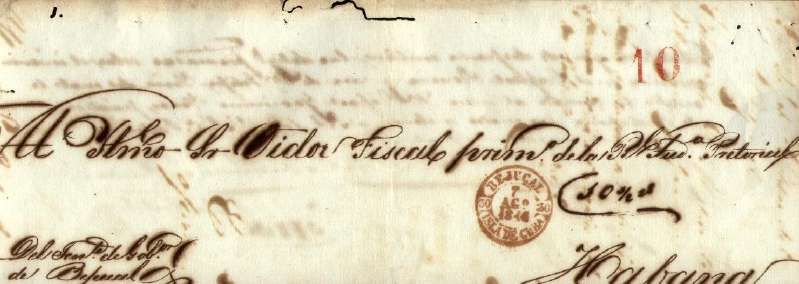 1.
10
Al Yltmo Sr Oidor Fiscal prim.o de la Rl Aud.a Pretorial
BEJUCAL
7
AGO
1846
ISLA DE CUBA
Del Ten.te de Gob.or
de Bejucal
Habana